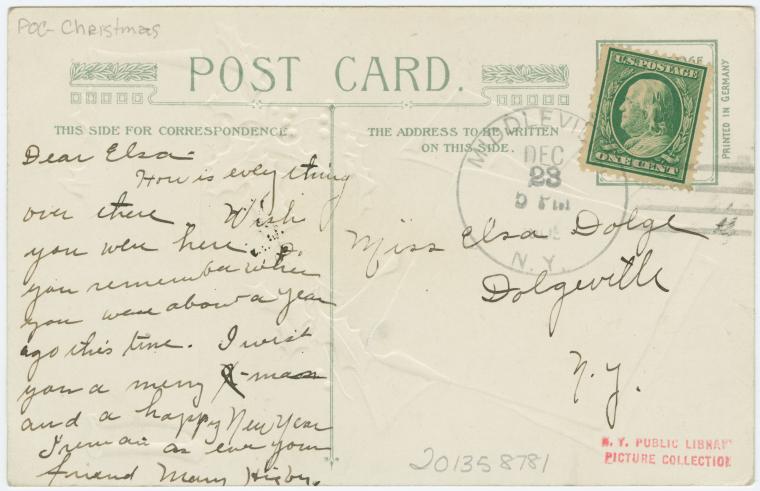 POC- Christmas
POST CARD.
U.S. POSTAGE
ONE CENT
PRINTED IN GERMANY
THIS SIDE FOR CORRESPONDENCE
THE ADDRESS TO BE WRITTEN
ON THIS SIDE.
DEC
23
5 PM
N.Y.
Dear Elsa-
How is everything
over there. Wish
you were here.
you remember when
you were about a year
ago this time. I wish
you a merry X-mas
and a happy New Year
I remain as ever your
friend Mary Higby.
Miss Elsa Dolge
Dolgeville
N.Y.
201358781
N. Y. PUBLIC LIBRARY
PICTURE COLLECTION